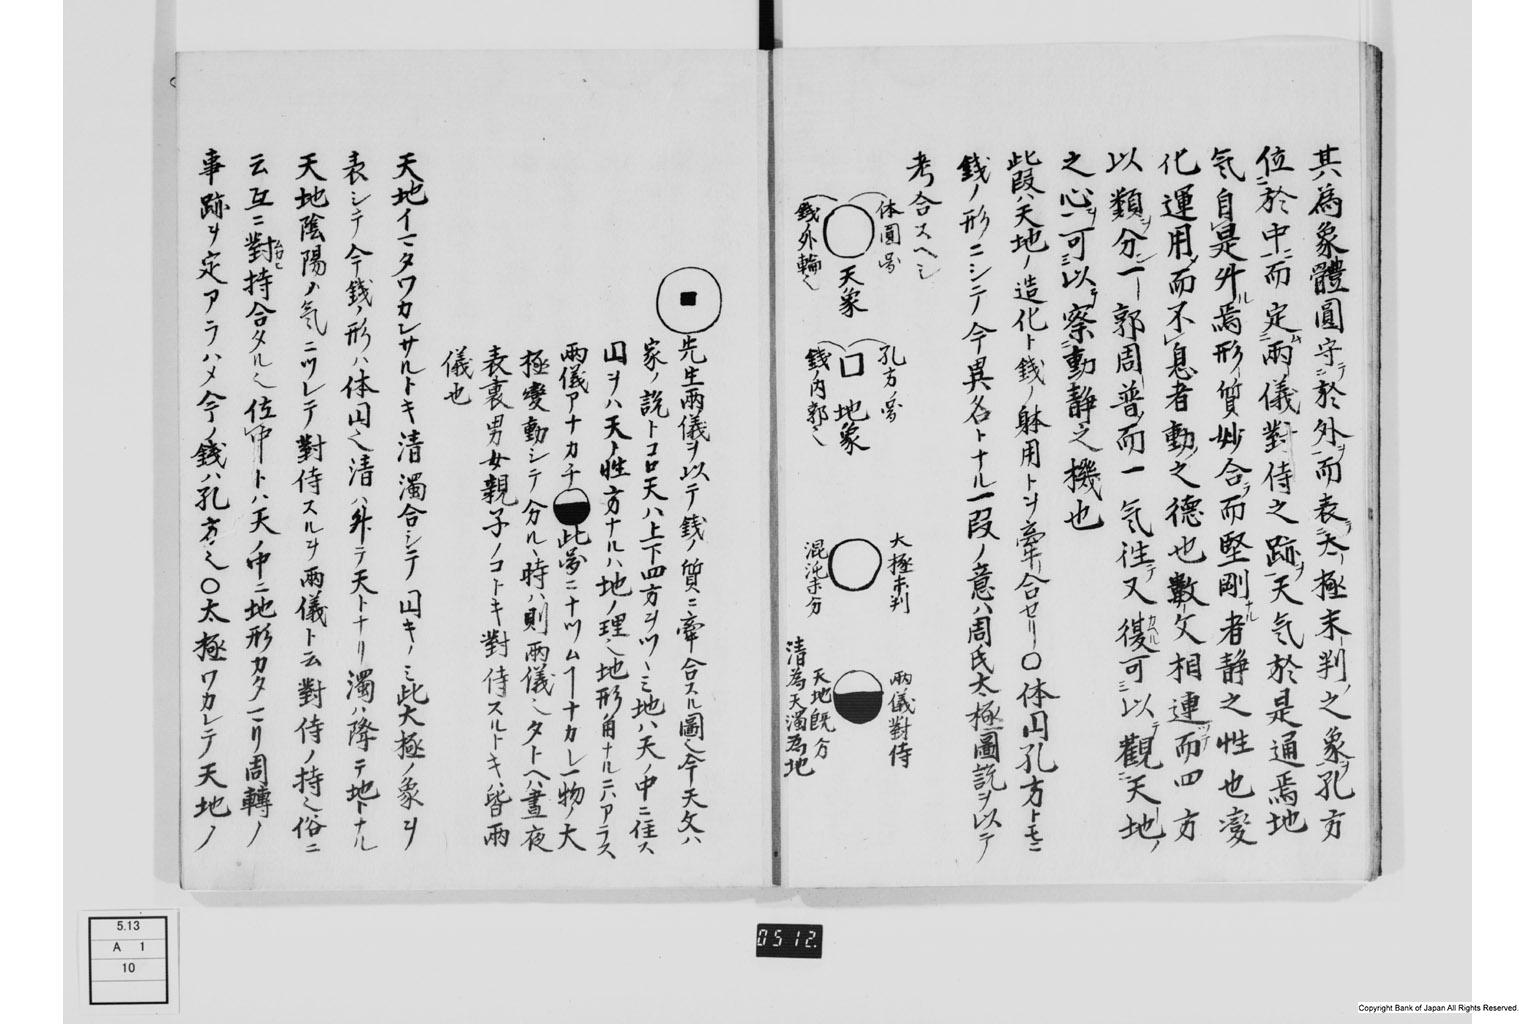 其為象體圓守於外而表太極未判之象孔方
位於中而定兩儀對待之跡天気於是通焉地
気自是升焉形質妙合而堅剛者静之性也変
化運用而不息者動之德也數文相連而四方
以類分一郭周普而一気往又復可以觀天地
之心可以察動静之機也
此段ハ天地ノ造化ト銭ノ躰用トヲ牽合セリ○体円孔方トモニ
銭ノ形ニシテ今異名トナル一段ノ意ハ周氏太極圖説ヲ以テ
考合スヘシ
体圓
天象
銭外輪
孔方
地象
銭ノ内郭
太極未判
混沌未分
兩儀對待
天地既分
清為天濁為地
先生兩儀ヲ以テ銭ノ質ニ牽合スル圖今天文ハ
家ノ説トコロ天ハ上下四方ヲツミ地ハ天ノ中ニ住ス
円ヲハ天ト性方ナルハ地ノ理地形角ナルニハアラス
兩儀アナカチ此ニナツムナカレ一物ノ大
極變動シテ分ル時ハ則兩儀タトヘハ晝夜
表裏男女親子ノコトキ對侍スルトキハ皆兩
儀也
天地イマタワカレサルトキ清濁合シテ円キノミ此大極ノ象ヲ
表シテ今銭ノ形ハ体円清ハ外テ天トナリ濁ハ降テ地トナル
天地陰陽ノ気ニツレテ對侍スルヲ兩儀ト云對侍ノ持俗ニ
云互ニ對持合タル位中トハ天ノ中ニ地形カタマリ周轉ノ
事跡ヲ定アラハメ今ノ銭ハ孔方○太極ワカレテ天地ノ
5.13
A 1
10
0512.
Copyright Bank of Japan All Rights Reserved.